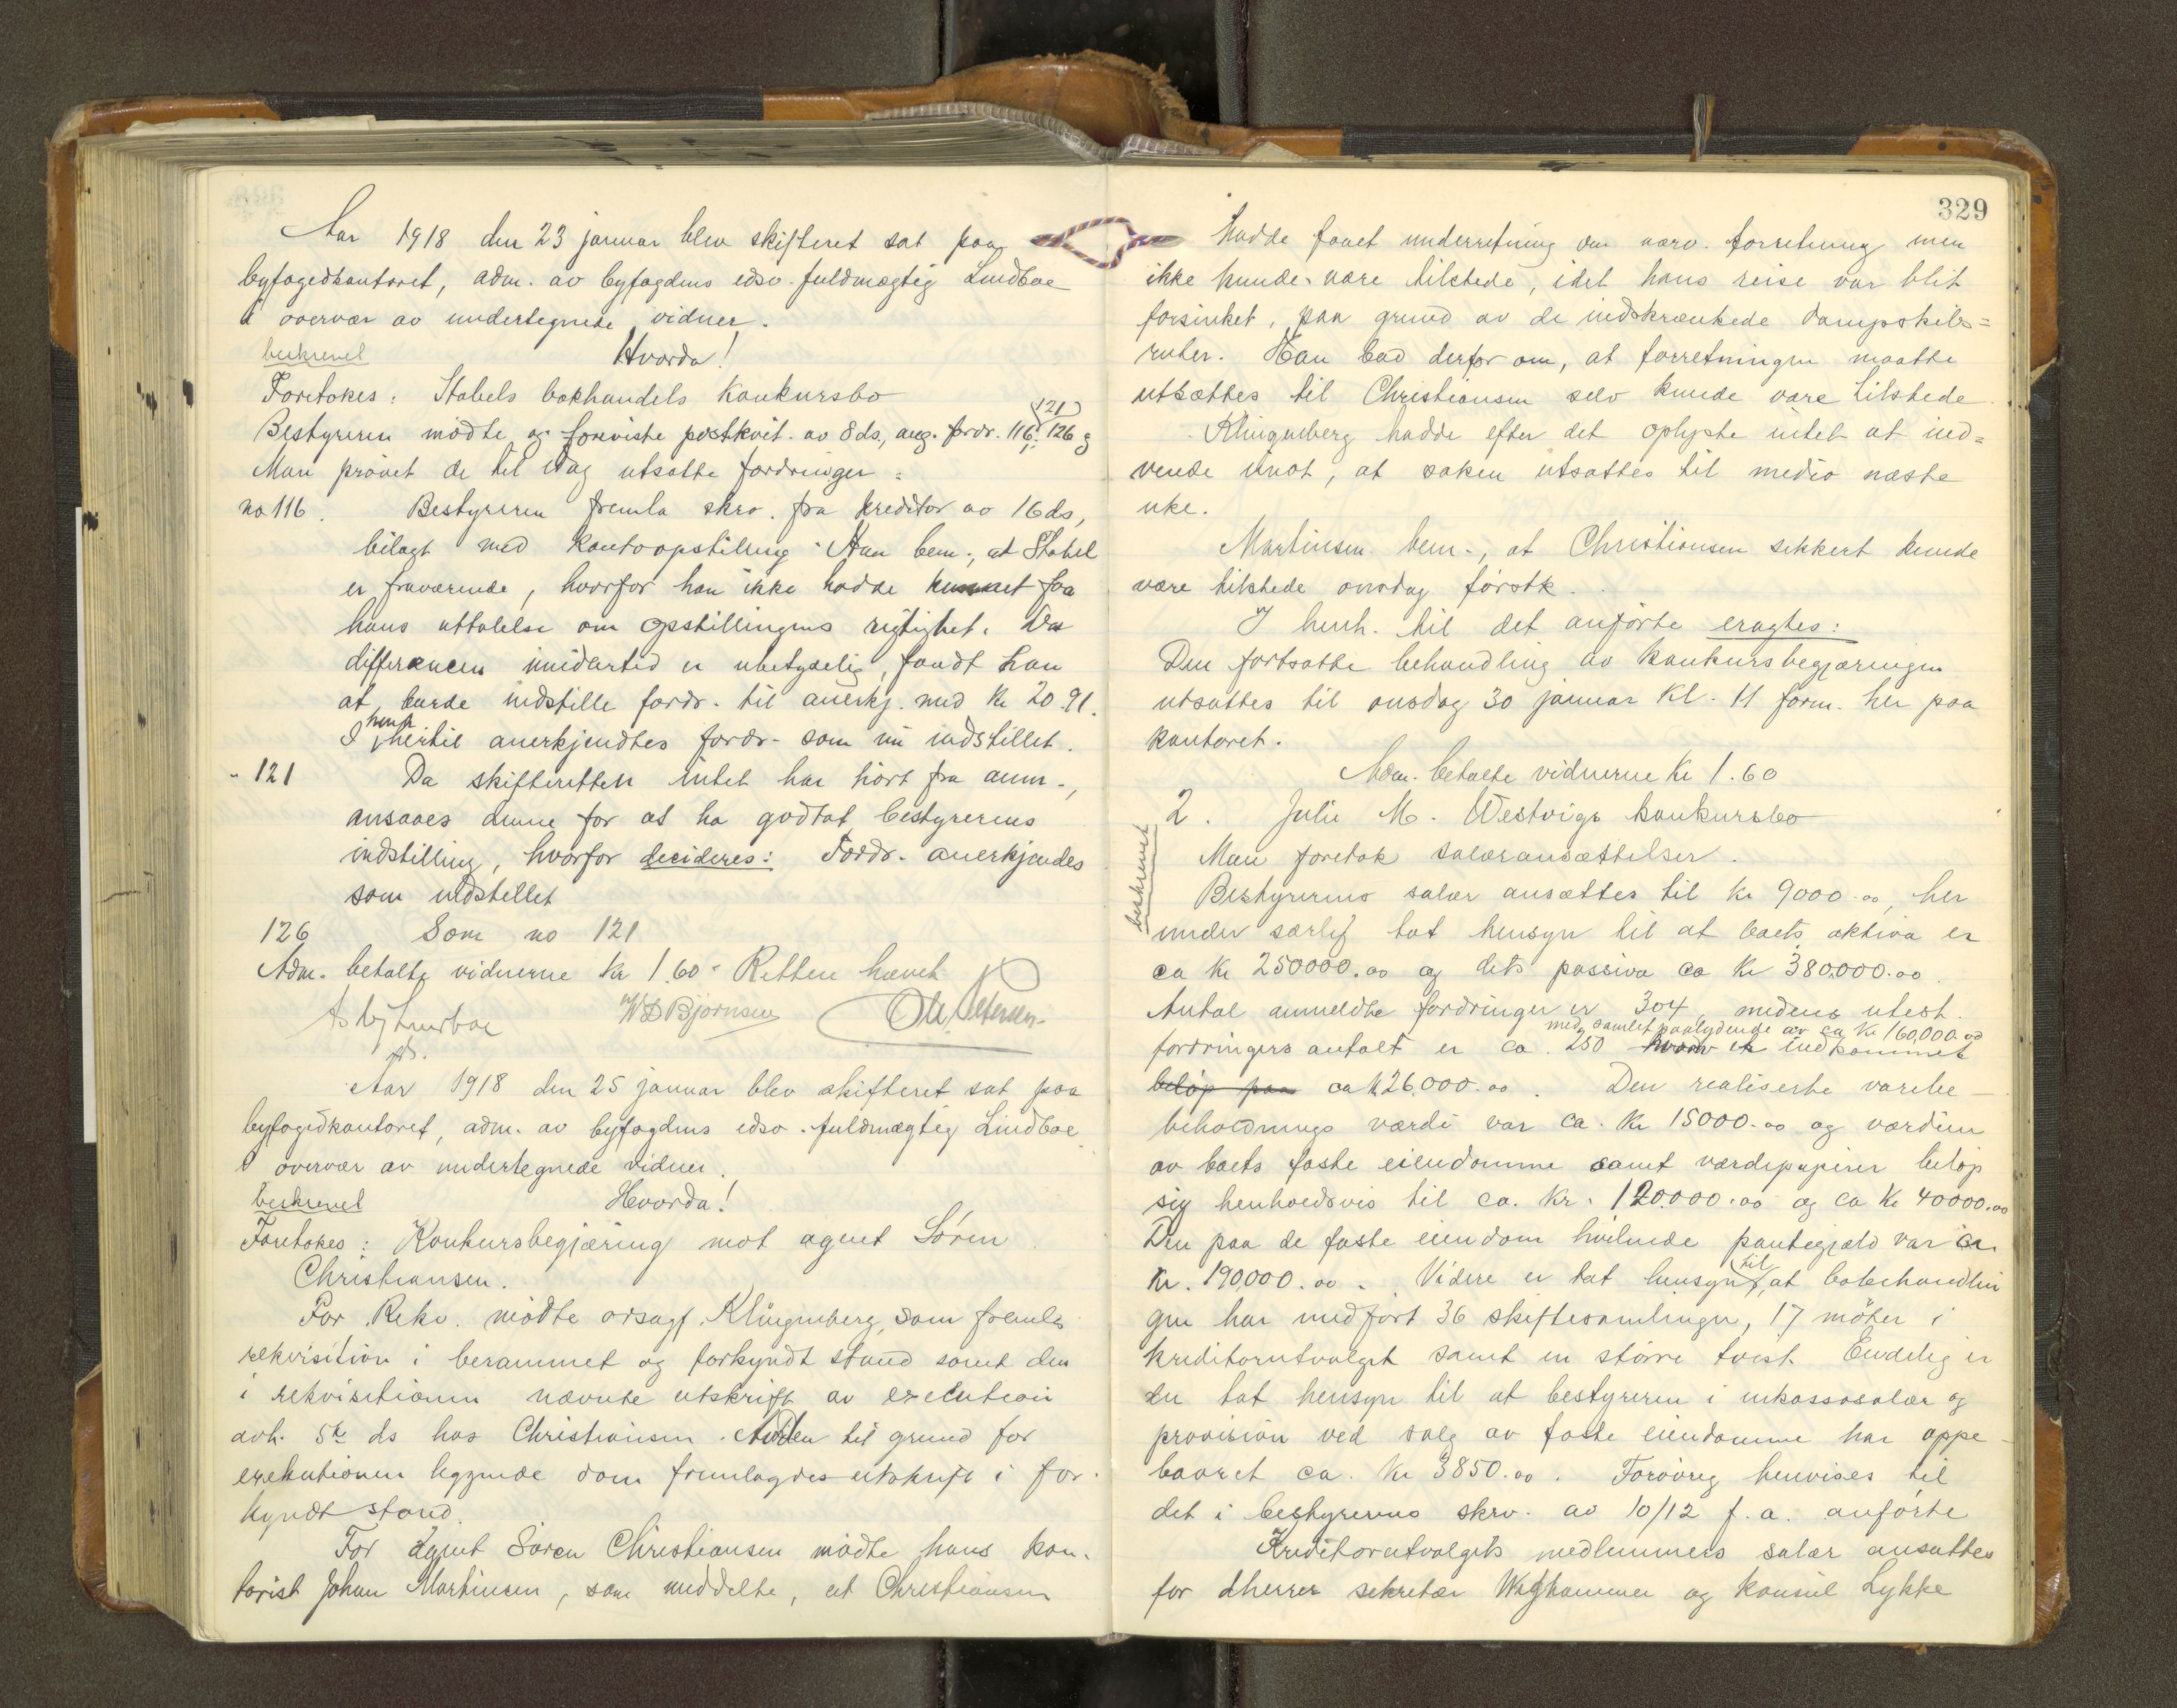 Aar 1918 den 23 januar blev skifteret sat paa
byfogedkontoret, adm. av byfogdens edsv. fuldmægtig Lindboe
i overvær av undertegnede vidner.
beskrevet Hvorda!
Foretokes: Stabels bokhandels konkursbo
121
Bestyreren mødte og foreviste postkvit. av 8 ds, ang. fordr. 116, 126 g
Man prøvet de til idag utsatte fordringer:
no 116. Bestyreren fremla skrv. fra kreditor av 16 ds,
bilagt med kontoopstilling. Han bem., at Stabel
er fraværende, hvorfor han ikke hadde kunnet faa
hans uttalelse om opstillingens rigtighet. Da
differencen imidlertid er ubetydelig, fandt han
at burde indstille fordr. til anerkj. med kr 20.91.
henh
I hertil anerkjendtes fordr. som nu indstillet.
" 121 Da skifteretten intet har hørt fra anm.,
ansaaes denne for at ha godtat bestyrerens
indstilling, hvorfor decideres: Fordr. anerkjendes
som indstillet
126 Som no 121
Adm. betalte vidnerne kr 1.60. Retten hævet
Asbj Lindboe W D Bjørnsen Ole Petersen
fs.
Aar 1918 den 25 januar blev skifteret sat paa
byfogedkontoret, adm. av byfogdens edsv. fuldmægtig Lindboe
i overvær av undertegnede vidner.
beskrevet Hvorda!
Foretokes: Konkursbegjæring mot agent Søren
Christiansen.
For Rekv. mødte orsagf. Klingenberg, som fremla
rekvisition i berammet og forkyndt stand samt den
i rekvisitionen nævnte utskrift av execution
avh. 5te ds hos Christiansen. Av den til grund for
exekutionen liggende dom fremlagdes utskrift i for-
kyndt stand.
For agent Søren Christiansen mødte hans kon-
torist Johan Martinsen, som meddelte, at Christiansen
329
hadde faaet underretning om nærv. forretning men
ikke kunde være tilstede, idet hans reise var blit
forsinket, paa grund av de indskrænkede dampskibs=
ruter. Han bad derfor om, at forretningen maatte
utsættes til Christiansen selv kunde være tilstede.
Klingenberg hadde efter det oplyste intet at ind=
vende imot, at saken utsattes til medio næste
uke.
Martinsen bem., at Christiansen sikkert kunde
være tilstede onsdag førstk.
I henh. til det anførte eragtes:
Den fortsatte behandling av konkursbegjæringen
utsættes til onsdag 30 januar kl. 11 form. her paa
kontoret.
Adm. betalte vidnerne kr 1.60
2. Julie M. Westvigs konkursbo
beskrevet
Man foretok salæransættelser.
Bestyrerens salær ansættes til kr 9000.00, her
under særlig tat hensyn til at boets aktiva er
ca kr 250000.00 og dets passiva ca kr 380.000.00.
Antal anmeldte fordringer er 304, medens utest.
med samlet paalydende av ca kr 160,000.00
fordringers antalt er ca. 250 hvorav er indkommet
beløp paa ca kr 26.000.00. Den realiserte varebe-
beholdnings værdi var ca. kr 15000.00 og værdien
av boets faste eiendomme samt værdipapirer beløp
sig henholdsvis til ca. kr. 120.000.00 og ca kr 40000.00
Den paa de faste eiendom hvilende pantegjæld var ca
til
kr. 190,000.00. Videre er tat hensyn, at bobehandlin
gen har medført 36 skiftesamlinger, 17 møter i
kreditorutvalget samt en større tvist. Endelig er
der tat hensyn til at bestyreren i inkassosalær og
provision ved salg av faste eiendomme har oppe-
baaret ca. kr 3850.00. Forøvrig henvises til
det i bestyrerens skrv. av 10/12 f.a. anførte
Kreditorutvalgets medlemmers salær ansattes
for dherrer sekretær Waghammer og konsul Lykke